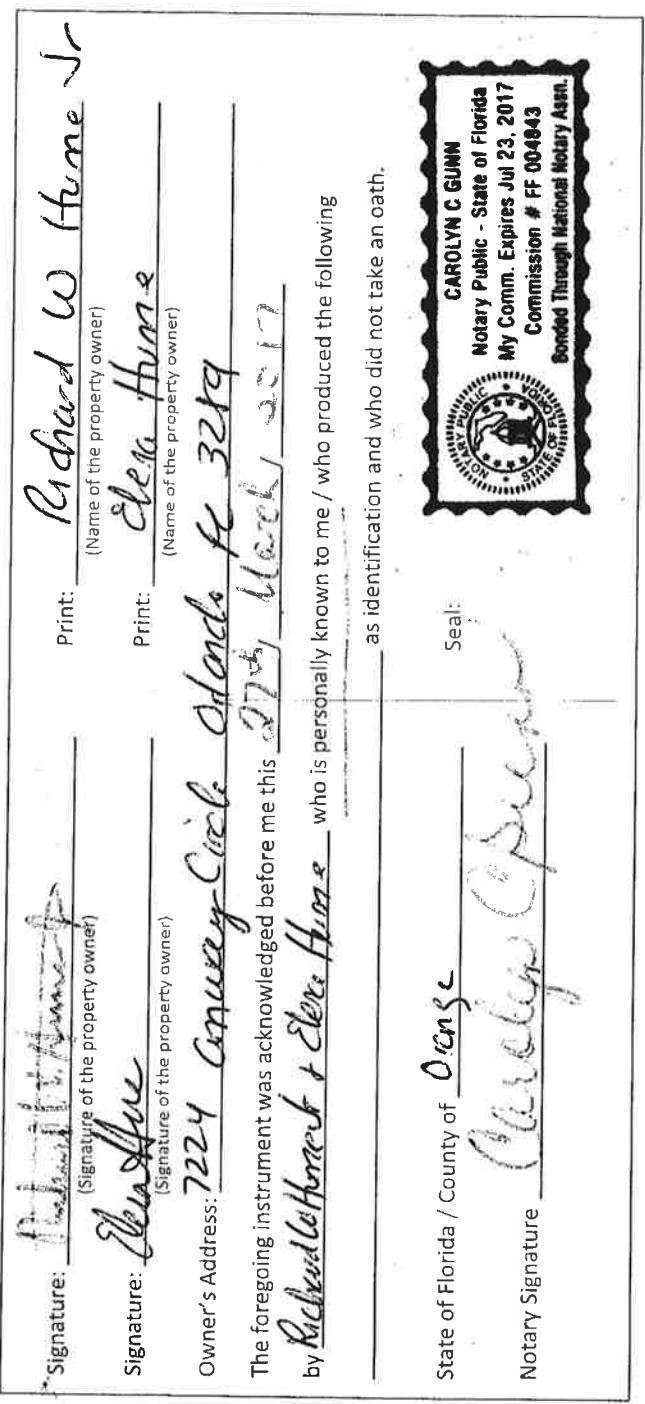 Signature: Print: Richard W Hume Jr
(Signature of the property owner) (Name of the property owner)
Signature: Elera Hume Print: Elera Hume
(Signature of the property owner) (Name of the property owner)
Owner's Address: 7224 Conway Circle Orlando FL 3289
The foregoing instrument was acknowledged before me this 27th March, 2017
by Richard W Hume Jr & Elera Hume who is personally known to me / who produced the following
as identification and who did not take an oath.
State of Florida / County of Orange Seal:
Notary Signature Carolyn C Gunn
NOTARY PUBLIC
STATE OF FLORIDA
CAROLYN C GUNN
Notary Public - State of Florida
My Comm. Expires Jul 23, 2017
Commission # FF 004843
Bonded Through National Notary Assn.